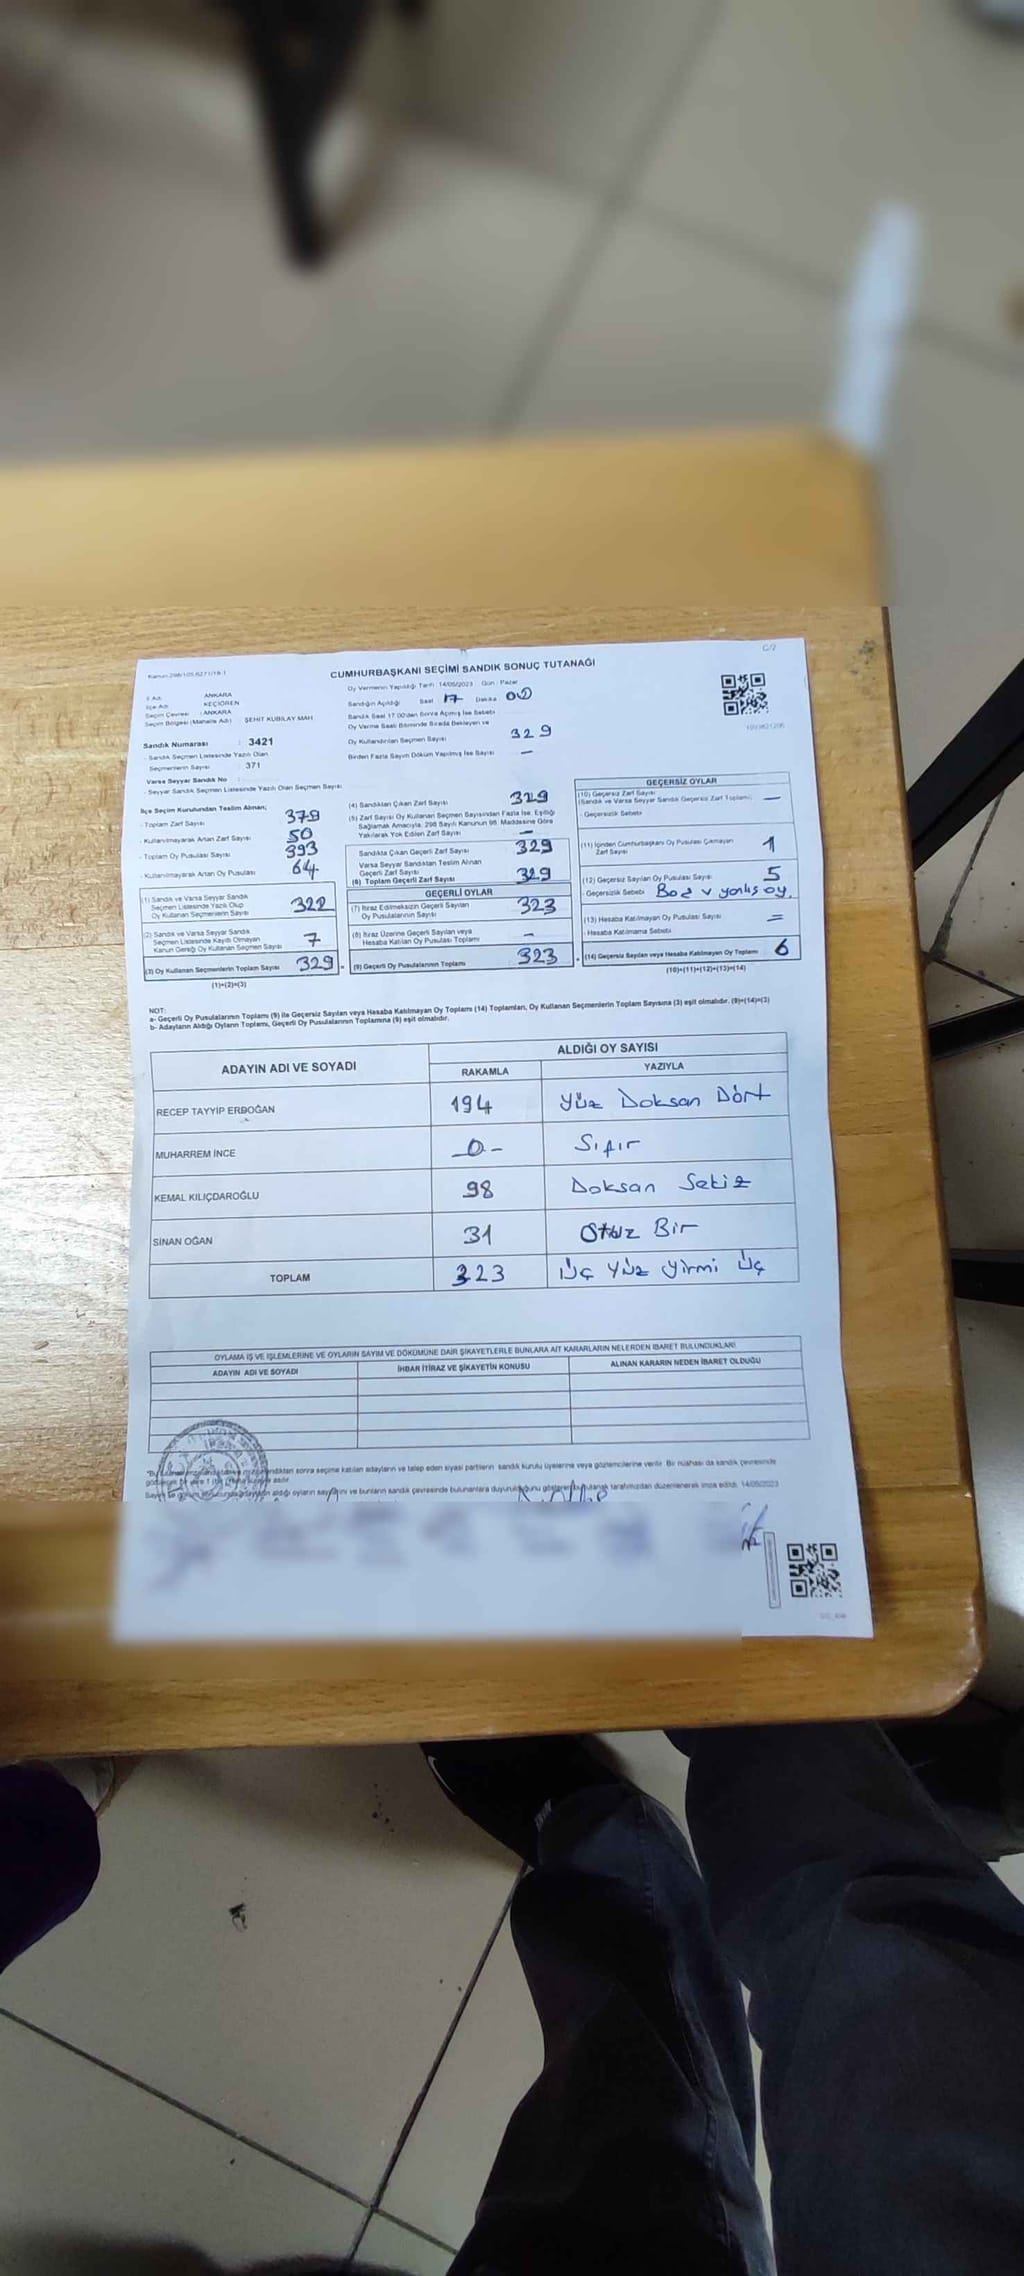 Kanun:298/105,6271/18-1
C/2
CUMHURBAŞKANI SEÇİMİ SANDIK SONUÇ TUTANAĞI
Oy Vermenin Yapıldığı Tarih :14/05/2023 Gün : Pazar
İl Adı : ANKARA
İlçe Adı : KEÇİÖREN
Seçim Çevresi : ANKARA
Seçim Bölgesi (Mahalle Adı) : ŞEHİT KUBİLAY MAH
Sandığın Açıldığı Saat 17 Dakika 00
Sandık Saat 17.00'den Sonra Açılmış İse Sebebi
Oy Verme Saati Bitiminde Sırada Bekleyen ve
Oy Kullandırılan Seçmen Sayısı 329
Birden Fazla Sayım Döküm Yapılmış İse Sayısı —
Sandık Numarası : 3421
- Sandık Seçmen Listesinde Yazılı Olan
Seçmenlerin Sayısı : 371
Varsa Seyyar Sandık No :
- Seyyar Sandık Seçmen Listesinde Yazılı Olan Seçmen Sayısı:
İlçe Seçim Kurulundan Teslim Alınan;
- Toplam Zarf Sayısı 379
- Kullanılmayarak Artan Zarf Sayısı 50
- Toplam Oy Pusulası Sayısı 393
- Kullanılmayarak Artan Oy Pusulası 64
(1) Sandık ve Varsa Seyyar Sandık
Seçmen Listesinde Yazılı Olup
Oy Kullanan Seçmenlerin Sayısı 322
(2) Sandık ve Varsa Seyyar Sandık
Seçmen Listesinde Kayıtlı Olmayan
Kanun Gereği Oy Kullanan Seçmen Sayısı 7
(3) Oy Kullanan Seçmenlerin Toplam Sayısı 329
(1)+(2)=(3)
(4) Sandıktan Çıkan Zarf Sayısı 329
(5) Zarf Sayısı Oy Kullanan Seçmen Sayısından Fazla İse, Eşitliği
Sağlamak Amacıyla, 298 Sayılı Kanunun 98. Maddesine Göre
Yakılarak Yok Edilen Zarf Sayısı —
Sandıkta Çıkan Geçerli Zarf Sayısı 329
Varsa Seyyar Sandıktan Teslim Alınan
Geçerli Zarf Sayısı
(6) Toplam Geçerli Zarf Sayısı 329
GEÇERLİ OYLAR
(7) İtiraz Edilmeksizin Geçerli Sayılan
Oy Pusulalarının Sayısı 323
(8) İtiraz Üzerine Geçerli Sayılan veya
Hesaba Katılan Oy Pusulası Toplamı —
(9) Geçerli Oy Pusulalarının Toplamı 323
GEÇERSİZ OYLAR
(10) Geçersiz Zarf Sayısı
(Sandık ve Varsa Seyyar Sandık Geçersiz Zarf Toplamı) —
- Geçersizlik Sebebi
(11) İçinden Cumhurbaşkanı Oy Pusulası Çıkmayan
Zarf Sayısı 1
(12) Geçersiz Sayılan Oy Pusulası Sayısı 5
- Geçersizlik Sebebi Boş v yanlış oy.
(13) Hesaba Katılmayan Oy Pusulası Sayısı =
- Hesaba Katılmama Sebebi
(14) Geçersiz Sayılan veya Hesaba Katılmayan Oy Toplamı 6
(10)+(11)+(12)+(13)=(14)
NOT:
a- Geçerli Oy Pusulalarının Toplamı (9) ile Geçersiz Sayılan veya Hesaba Katılmayan Oy Toplamı (14) Toplamları, Oy Kullanan Seçmenlerin Toplam Sayısına (3) eşit olmalıdır. (9)+(14)=(3)
b- Adayların Aldığı Oyların Toplamı, Geçerli Oy Pusulalarının Toplamına (9) eşit olmalıdır.
ADAYIN ADI VE SOYADI ALDIĞI OY SAYISI
RAKAMLA YAZIYLA
RECEP TAYYİP ERDOĞAN 194 Yüz Doksan Dört
MUHARREM İNCE -0- Sıfır
KEMAL KILIÇDAROĞLU 98 Doksan Sekiz
SİNAN OĞAN 31 Otuz Bir
TOPLAM 323 Üç Yüz Yirmi Üç
OYLAMA İŞ VE İŞLEMLERİNE VE OYLARIN SAYIM VE DÖKÜMÜNE DAİR ŞİKAYETLERLE BUNLARA AİT KARARLARIN NELERDEN İBARET BULUNDUKLARI
ADAYIN ADI VE SOYADI İHBAR İTİRAZ VE ŞİKAYETİN KONUSU ALINAN KARARIN NEDEN İBARET OLDUĞU
sonra seçime katılan adayların ve talep eden siyasi partilerin sandık kurulu üyelerine veya gözlemcilerine verilir. Bir nüshası da sandık çevresinde
aldığı oyların sayılarını ve bunların sandık çevresinde bulunanlara duyurulduğunu gösteren bu tutanak tarafımızdan düzenlenerek imza edildi. 14/05/2023